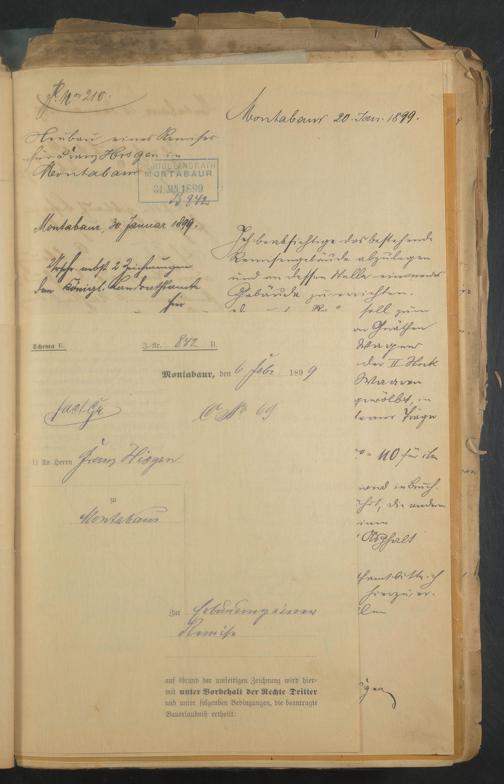 J. Nr 210.
Montabaur 20. Jan. 1899.
Neubau eines Remises
für Franz Hisgen in
Montabaur
KÖNIGL. LANDRATH
MONTABAUR
31. JAN. 1899
B 842
Montabaur, 30. Januar 1899.
Ich beabsichtige das bestehende
Remisengebäude abzulegen
und an dessen Stelle ein neues
Gebäude zu errichten.
Urschr. nebst 2 Zeichnungen
dem Königl. Landrathsamte
hier
soll zum
Wagen
der II Stock
Waaren
gewölbt, in
Träger
wird in Bruch-
die andern
Asphalt
Schema E.
J.-Nr. 842 B.
Montabaur, den 6 Febr 1899
C No 69
1) An Herrn Franz Hisgen
zu
Montabaur
Zur Erbauung einer
Remise
auf Grund der umseitigen Zeichnung wird hier-
mit unter Vorbehalt der Rechte Dritter
und unter folgenden Bedingungen, die beantragte
Bauerlaubniß ertheilt: